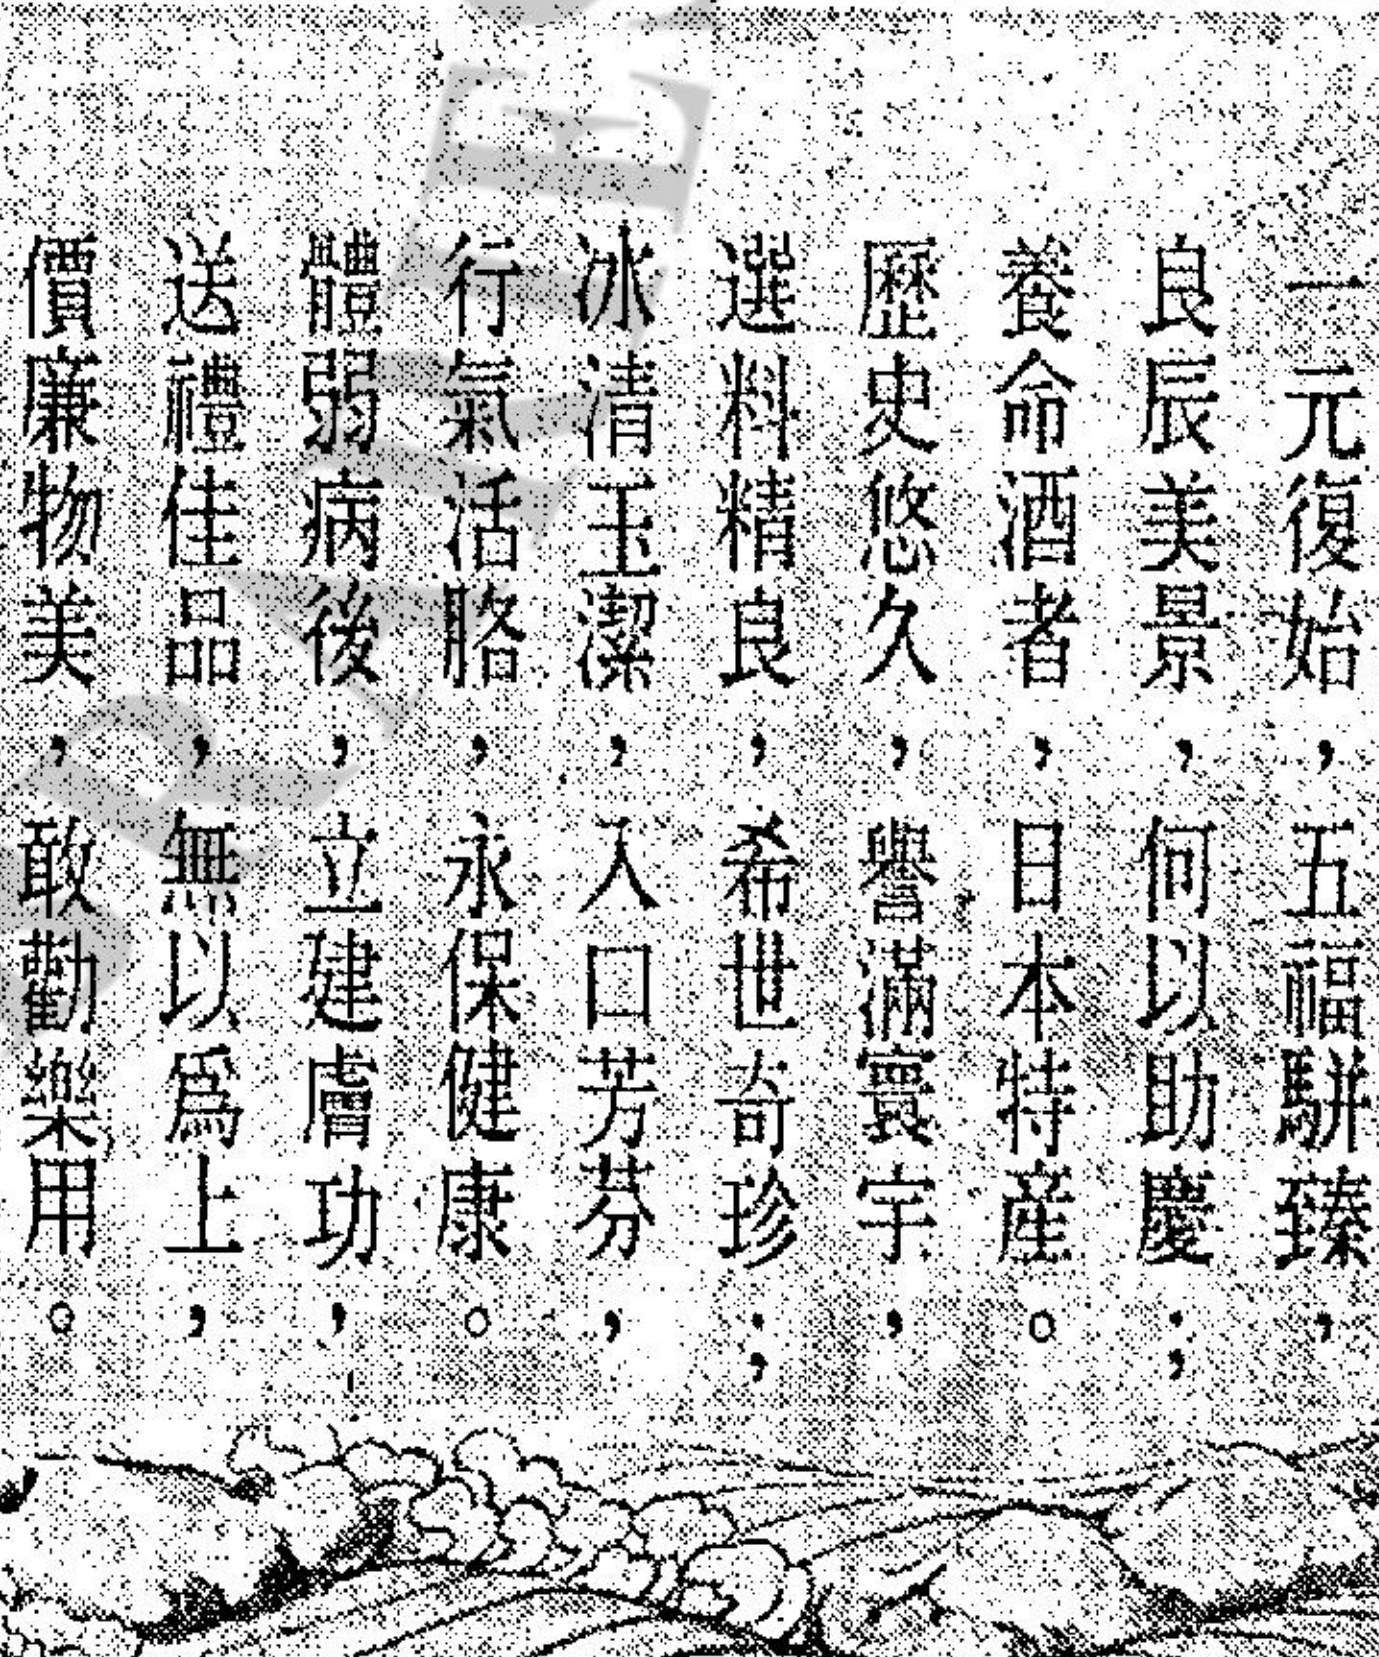 一元復始，五福駢臻，
良辰美景，何以助慶；
養命酒者，日本特産。
歷史悠久，譽滿寰宇，
選料精良，希世奇珍；
冰清玉潔，入口芳芬，
行氣活胳，永保健康。
體弱病後，立建膚功，
送禮佳品，無以爲上，
價廉物美，敢勸樂用。